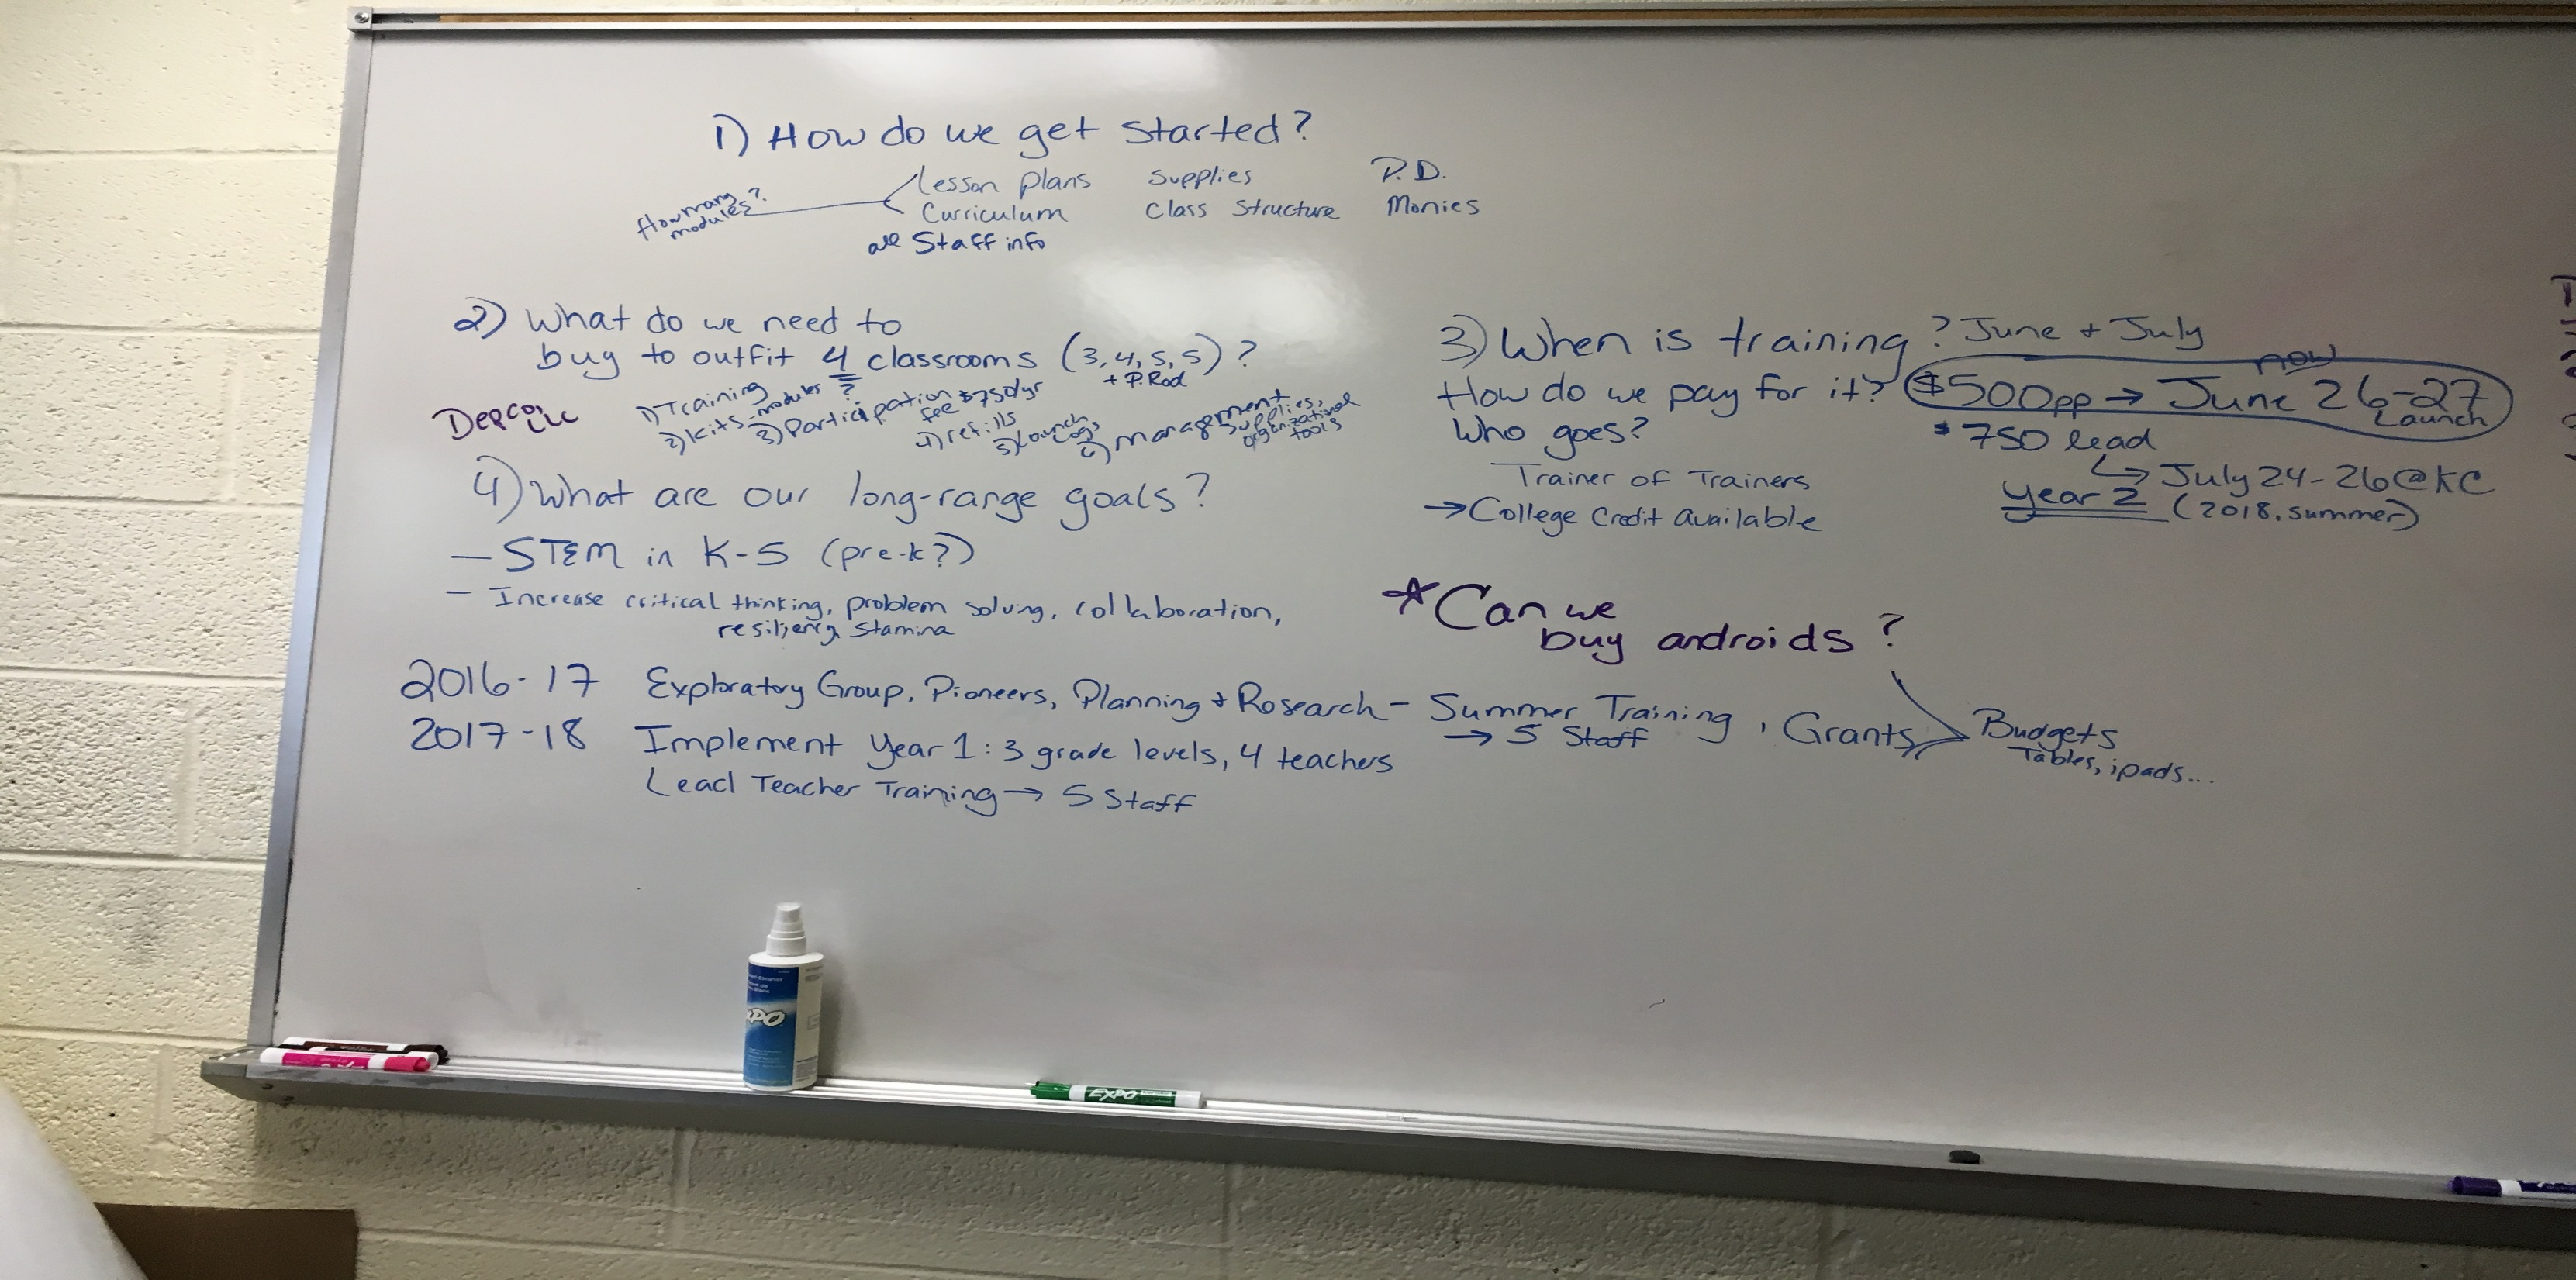 1) How do we get started?
How many modules?
Lesson plans Supplies P.D.
Curriculum Class Structure Monies
all Staff info
2) What do we need to
buy to outfit 4 classrooms (3, 4, 5, 5)?
+ P. Rod
1) Training
2) kits-modules ?
3) Participation fee $750/yr
4) refills
5) Launch Logs
6) management supplies, organizational tools
3) When is training? June + July
How do we pay for it? $500pp → June 26-27
now
Launch
Who goes? $750 lead
Trainer of Trainers
↳ July 24-26@KC
→ College Credit Available
year 2 (2018, summer)
4) What are our long-range goals?
— STEM in K-5 (pre-k?)
- Increase critical thinking, problem solving, collaboration,
resiliency, stamina
*Can we
buy androids?
2016-17 Exploratory Group, Pioneers, Planning + Research - Summer Training, Grants
→ 5 Staff
Budgets
Tables, ipads...
2017-18 Implement Year 1: 3 grade levels, 4 teachers
Lead Teacher Training → 5 Staff
EXPO